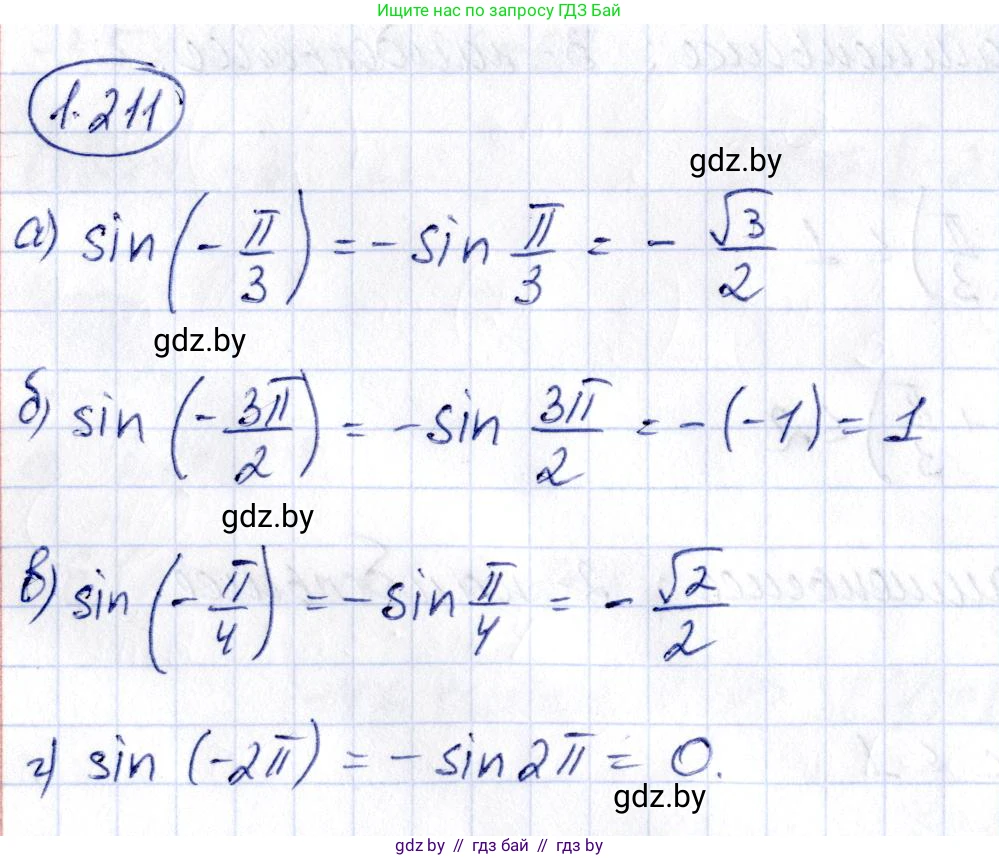 Ищите нас по запросу ГДЗ Бай
1.211
gdz.by
а) sin(-π/3) = -sin π/3 = - √3/2
gdz.by
б) sin(-3π/2) = -sin 3π/2 = -(-1) = 1
gdz.by
в) sin(-π/4) = -sin π/4 = - √2/2
г) sin(-2π) = -sin 2π = 0.
gdz.by
gdz.by // гдз бай // gdz by